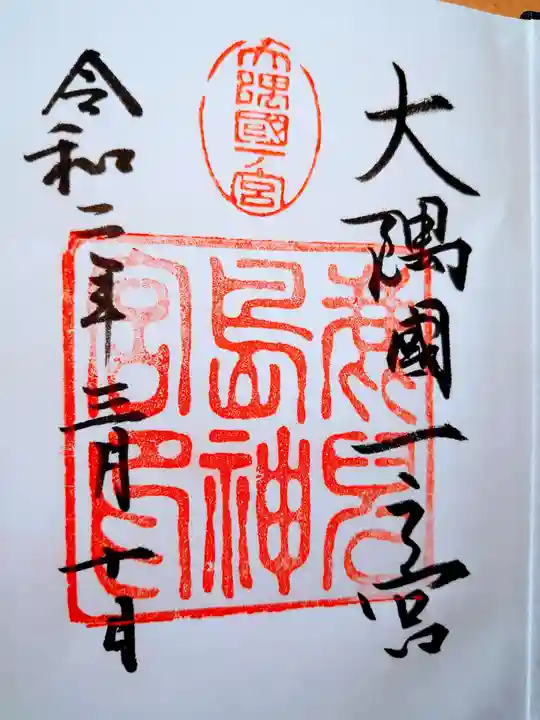 大隅國一之宮
大隅國一ノ宮
鹿兒島神宮印
令和二年三月十日